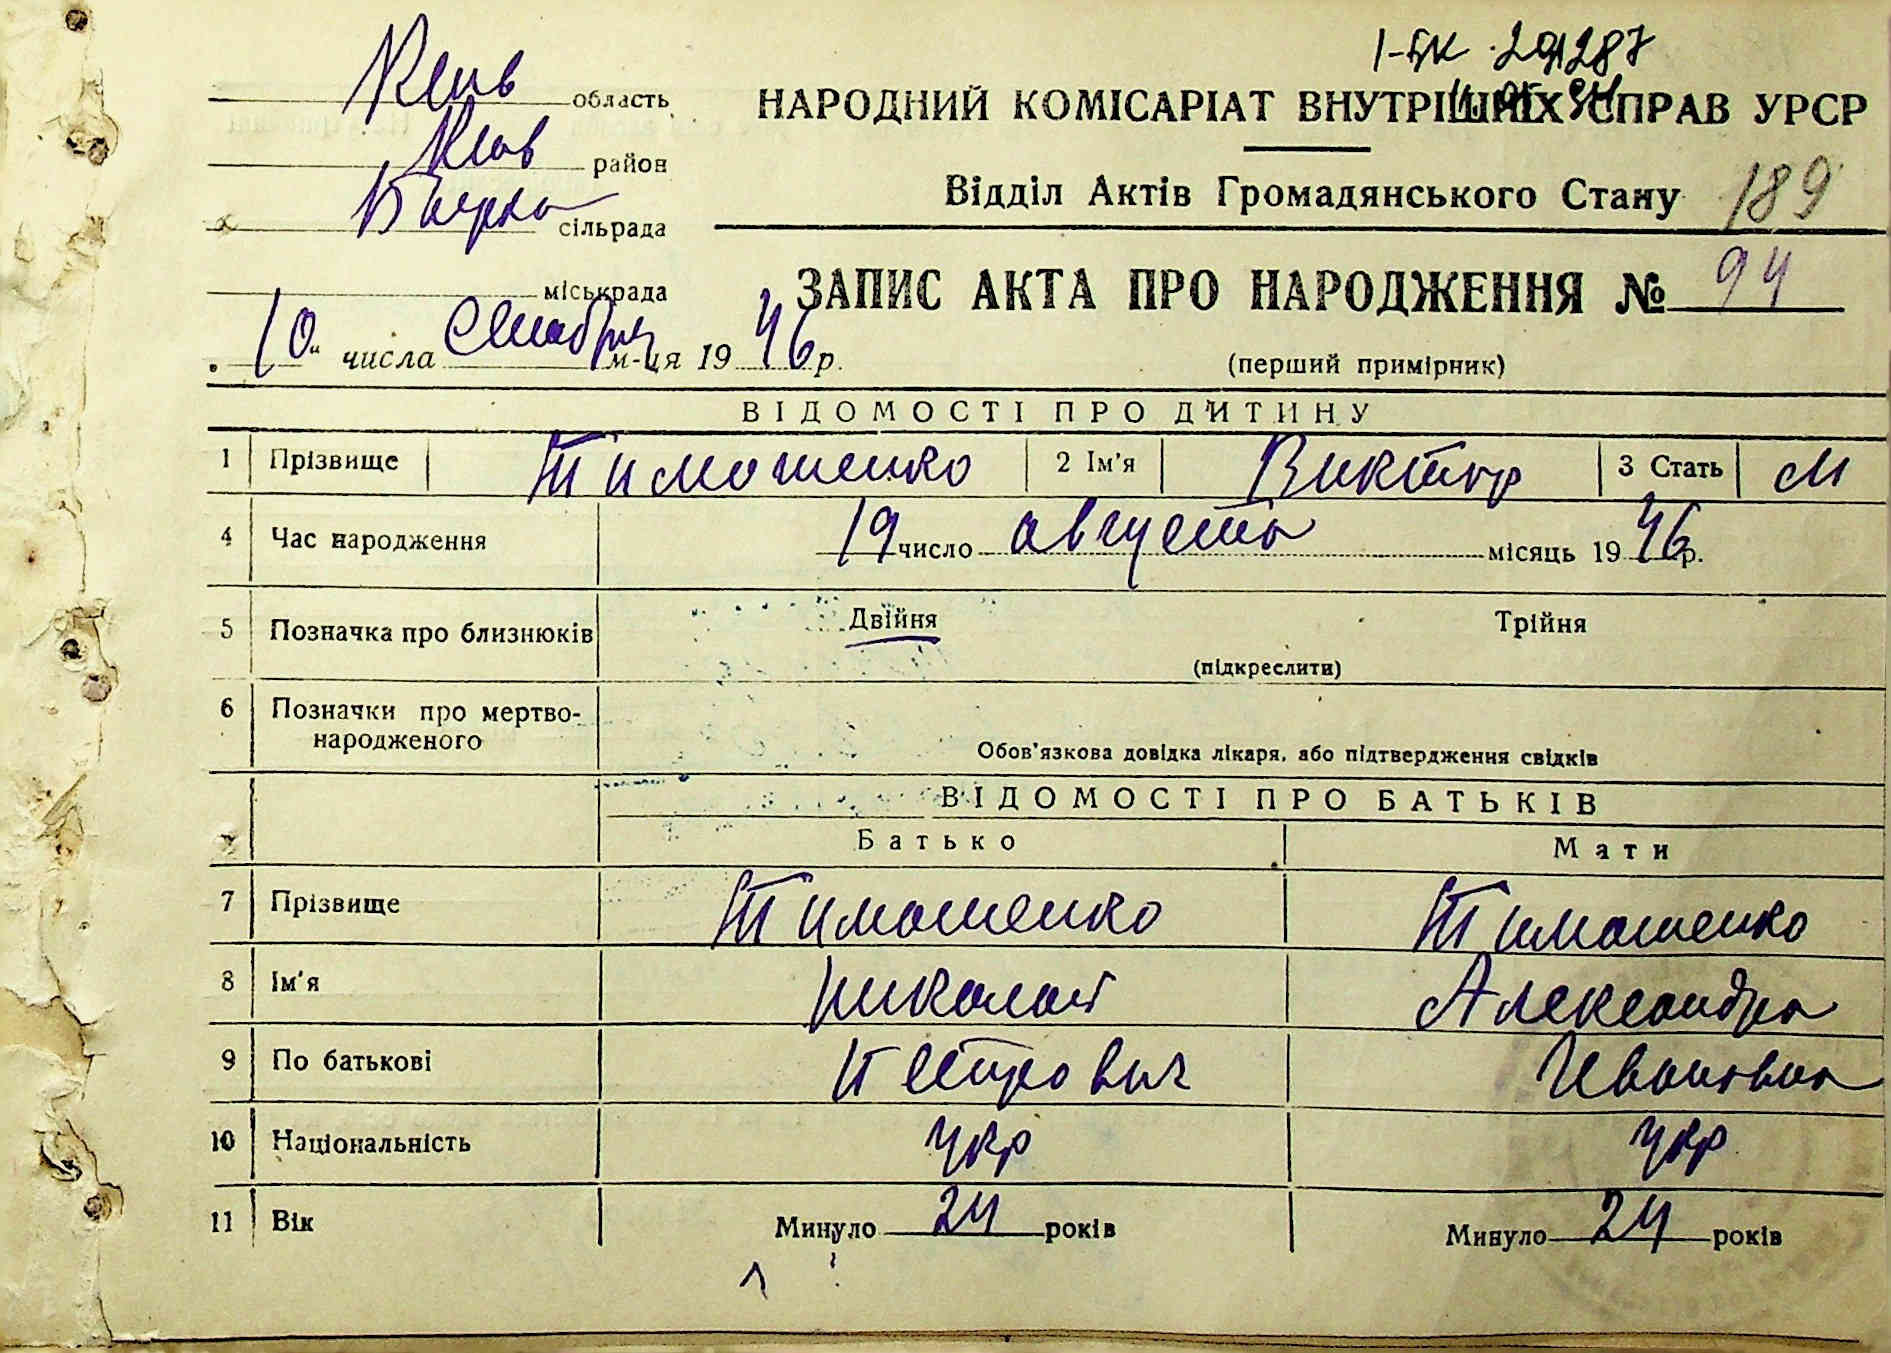 І-БК 291287
Киев область
Киев район
Боярка сільрада
міськрада
НАРОДНИЙ КОМІСАРІАТ ВНУТРІШНІХ СПРАВ УРСР
Відділ Актів Громадянського Стану 189
ЗАПИС АКТА ПРО НАРОДЖЕННЯ № 94
"10" числа сентября м-ця 1946 р.
(перший примірник)
ВІДОМОСТІ ПРО ДИТИНУ
1 Прізвище Тимошенко 2 Ім'я Виктор 3 Стать М
4 Час народження 19 число августа місяць 1946 р.
5 Позначка про близнюків Двійня Трійня
(підкреслити)
6 Позначки про мертво-
народженого
Обов'язкова довідка лікаря, або підтвердження свідків
ВІДОМОСТІ ПРО БАТЬКІВ
Батько Мати
7 Прізвище Тимошенко Тимошенко
8 Ім'я Николай Александра
9 По батькові Петрович Ивановна
10 Національність укр укр
11 Вік Минуло 24 років Минуло 24 років